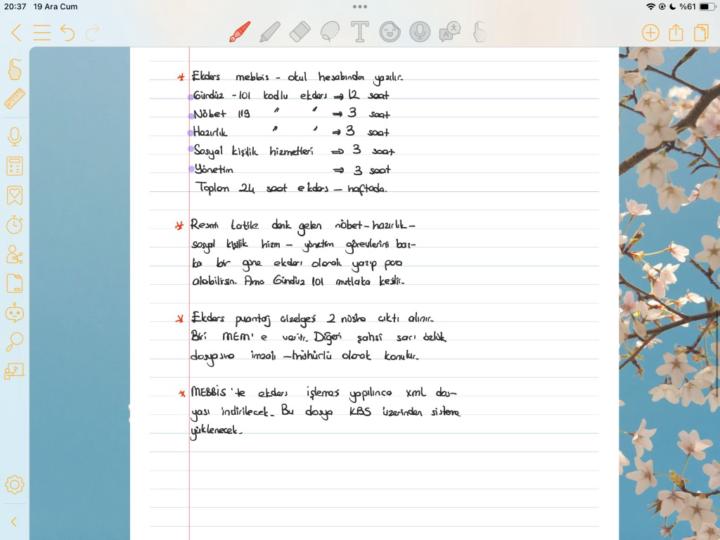 20:37 19 Ara Cum
%61
* Ekders mebbis - okul hesabından yazılır.
Gündüz - 101 kodlu ekders → 12 saat
Nöbet 119 " " → 3 saat
Hazırlık " " → 3 saat
Sosyal kişilik hizmetleri ⇒ 3 saat
Yönetim ⇒ 3 saat
Toplam 24 saat ekders - haftada.
* Resmi tatile denk gelen nöbet - hazırlık -
sosyal kişilik hizm - yönetim görevlerini baş-
ka bir güne ekders olarak yazıp para
alabilirsin. Ama Gündüz 101 mutlaka kesilir.
* Ekders puantaj çizelgesi 2 nüsha çıktı alınır.
Biri MEM'e verilir. Diğeri şahsi sarı özlük
dosyasına imzalı - mühürlü olarak konulur.
* MEBBİS'te ekders işlemesi yapılınca xml dos-
yası indirilecek. Bu dosya KBS üzerinden sisteme
yüklenecek.